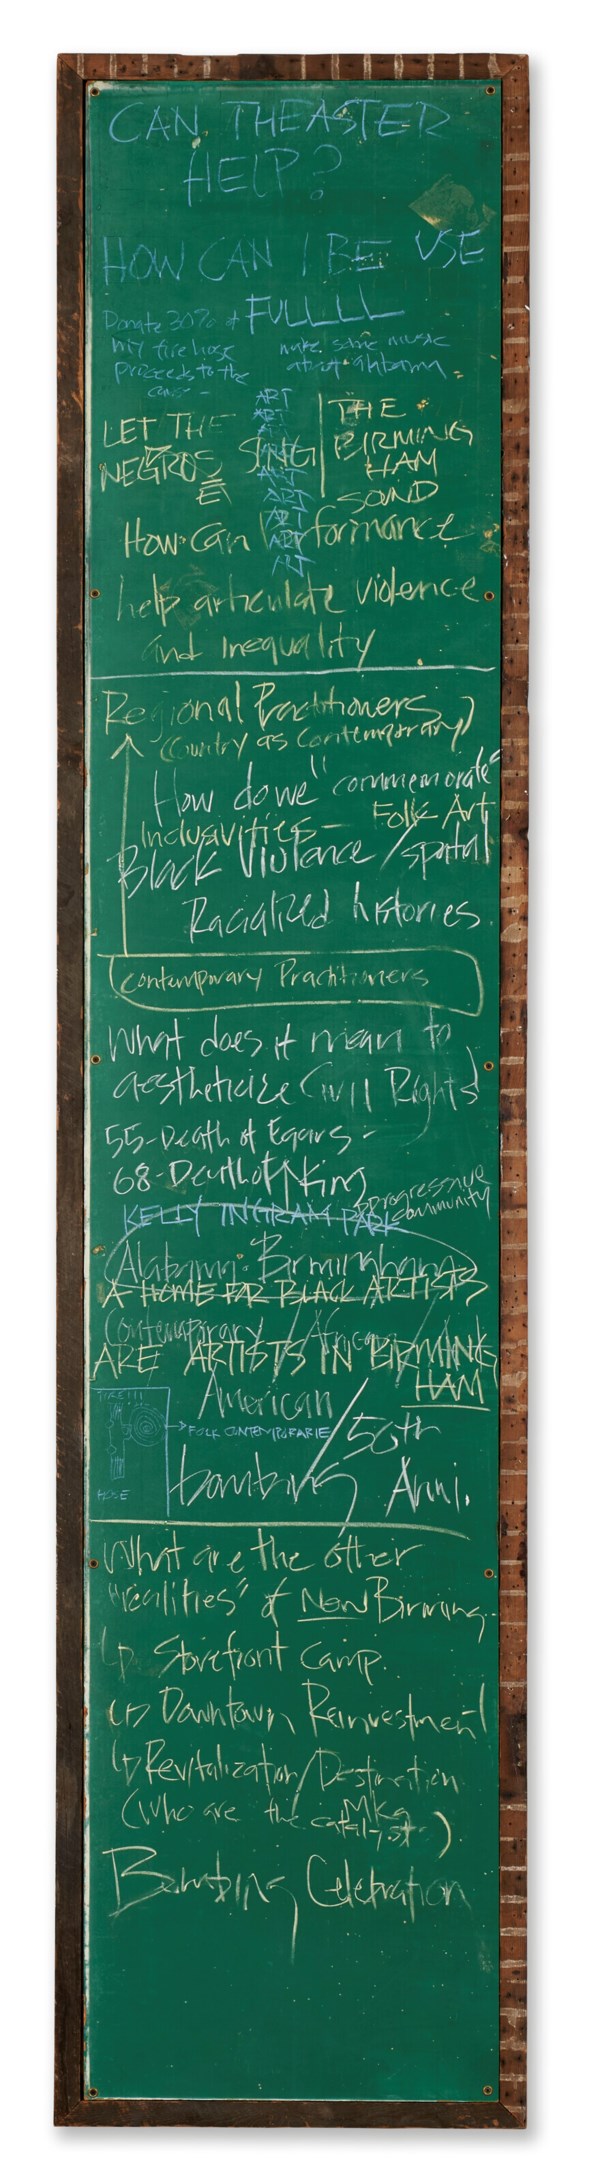 CAN THEASTER
HELP?
HOW CAN I BE USE
FULLLLL
Donate 30% of
my fire hose
proceeds to the
cause -
make some music
about alabama
ART
ART
ART
ART
ART
ART
ART
ART
ART
LET THE
NEGROS SING
E
THE
BIRMING
HAM
SOUND
How Can Performance
help articulate violence
and inequality
Regional Practitioners
(Country as Contemporary)
How do we "commemorate"
Inclusivities - Folk Art
Black Violence / spatial
Racialized histories.
Contemporary Practitioners
What does it mean to
aestheticize Civil Rights
55-Death of Egars -
68-Death of King
progressive
community
KELLY INGRAM PARK
Alabama. Birmingham
A HOME FOR BLACK ARTISTS
Contemporary / African
ARE ARTISTS IN BIRMING
HAM
American
FIRE!!!
HOSE
FOLK CONTEMPORARIE
50th
bombing Anni.
What are the other
"realities" of New Birming.
Storefront Camp.
Downtown Reinvestment
Revitalization/Destination
Mkg
(Who are the catalyst)
Bombing Celebration